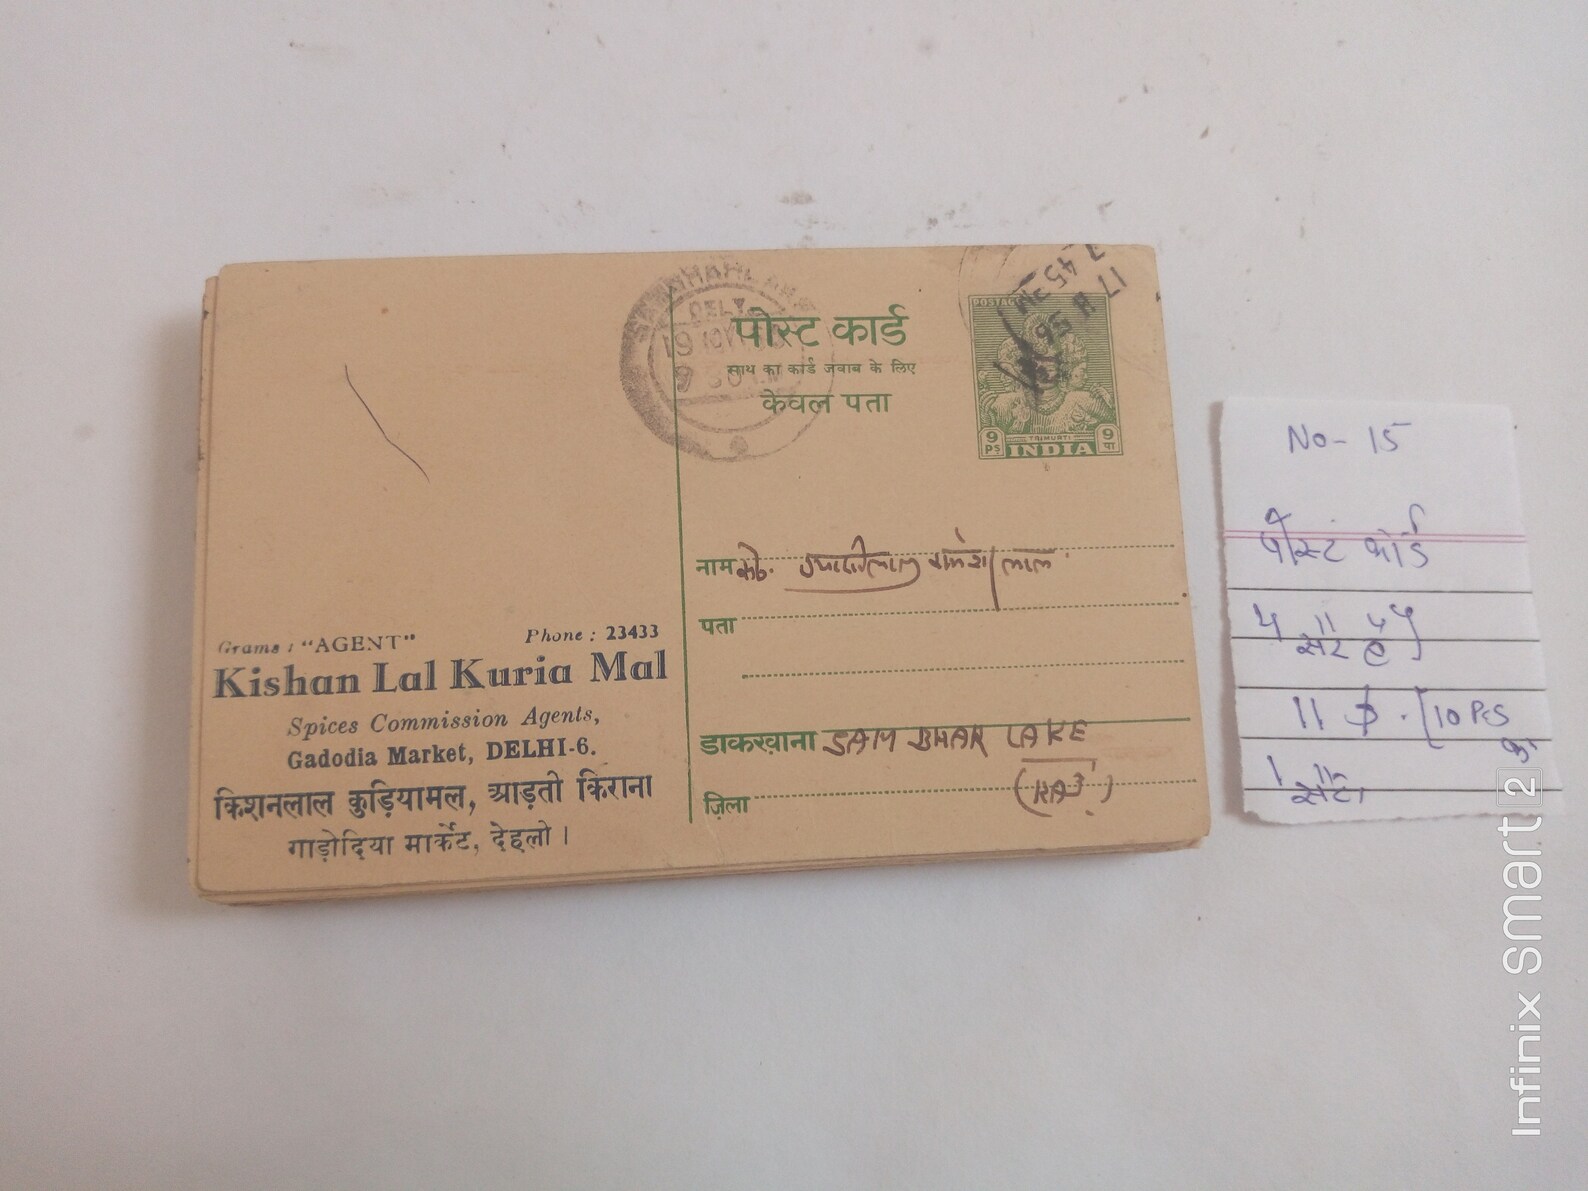 SAMBHAR LAKE
DELY.
19 NOV
POSTAGE
7 45 PM
17 11 56
पोस्ट कार्ड
साथ का कार्ड जवाब के लिए
केवल पता
9 PS TRIMURTI INDIA 9 पा
नाम लाल
पता
डाकखाना SAMBHAR LAKE
ज़िला (RAJ)
Grams : "AGENT" Phone : 23433
Kishan Lal Kuria Mal
Spices Commission Agents,
Gadodia Market, DELHI-6.
किशनलाल कुड़ियामल, आड़ती किराना
गाड़ोदिया मार्केट, देहली ।
No- 15
पोस्ट कार्ड
सेट है
11 [10 Pcs
का
1 सेट।
Infinix Smart 2